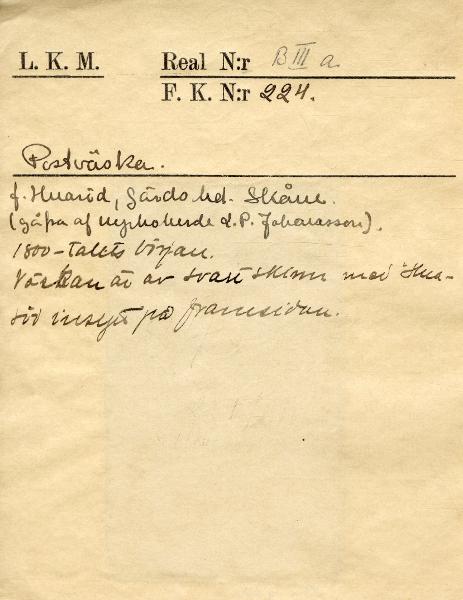 L. K. M. Real N:r B III a.
F. K. N:r 224.
Postväska.
f. Huaröd, Gärds hd. Skåne.
(gåfva af kyrkoherde L. P. Johansson).
1800-talets början.
Väskan är av svart skinn med "Hua-
röd insytt på framsidan.